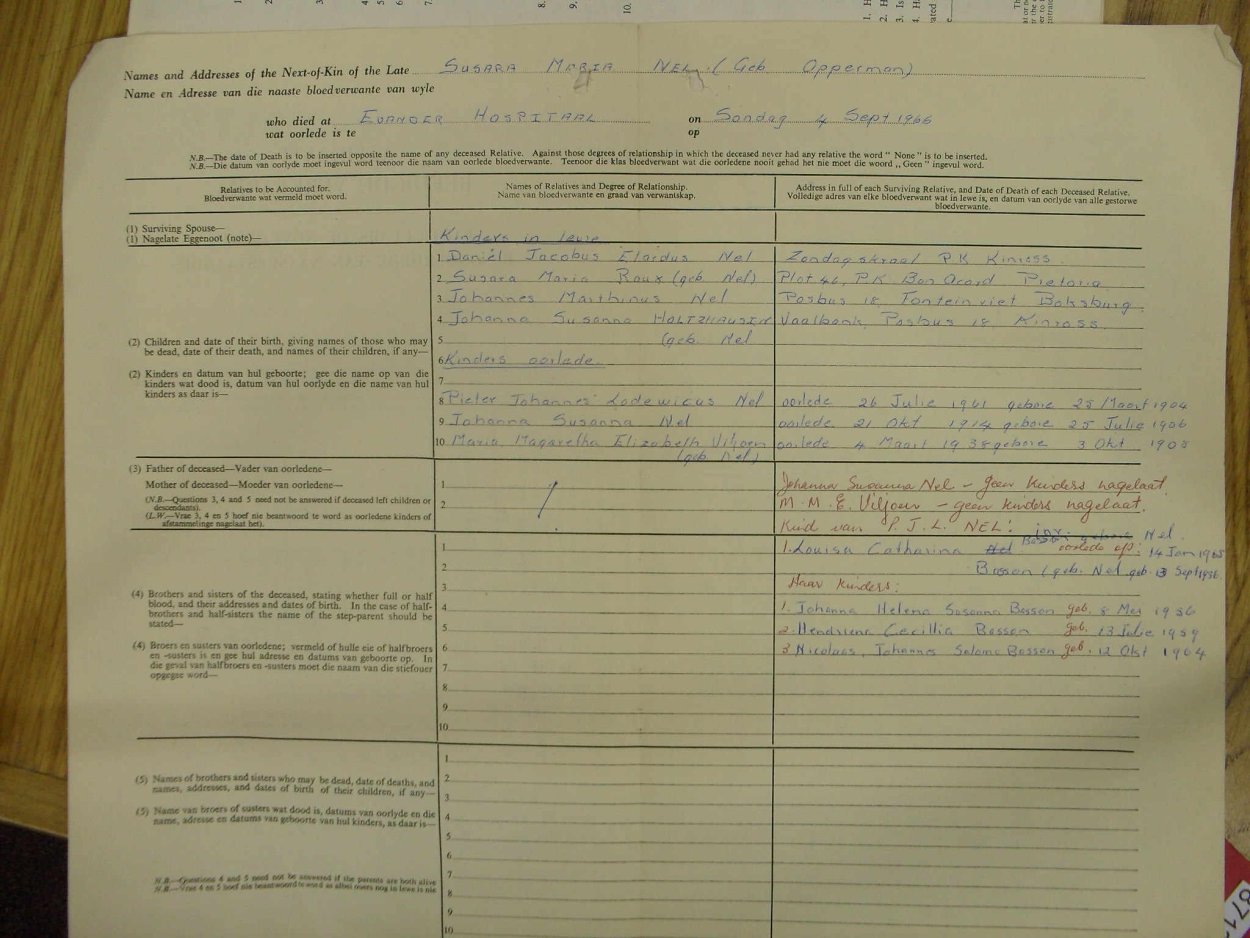 Names and Addresses of the Next-of-Kin of the Late SUSARA MARIA NEL. (Geb Opperman)
Name en Adresse van die naaste bloedverwante van wyle
who died at EVANDER HOSPITAAL on Sondag 4 Sept 1966
wat oorlede is te op
N.B.—The date of Death is to be inserted opposite the name of any deceased Relative. Against those degrees of relationship in which the deceased never had any relative the word "None" is to be inserted.
N.B.—Die datum van oorlyde moet ingevul word teenoor die naam van oorlede bloedverwante. Teenoor die klas bloedverwant wat die oorledene nooit gehad het nie moet die woord „Geen" ingevul word.
Relatives to be Accounted for.
Bloedverwante wat vermeld moet word.
Names of Relatives and Degree of Relationship.
Name van bloedverwante en graad van verwantskap.
Address in full of each Surviving Relative, and Date of Death of each Deceased Relative.
Volledige adres van elke bloedverwant wat in lewe is, en datum van oorlyde van alle gestorwe
bloedverwante.
(1) Surviving Spouse—
(1) Nagelate Eggenoot (note)—
Kinders in lewe
1 Daniël Jacobus Elardus Nel Zondagskraal P.K Kinross.
2 Susara Maria Roux (geb Nel) Plot 46, P.K. Bon Acord Pretoria
3 Johannes Marthinus Nel Posbus 18, Fonteinriet Boksburg
4 Johanna Susanna HOLTZHAUSEN Vaalbank, Posbus 18, Kinross.
5 (geb. Nel
6 Kinders oorlede
7
8 Pieter Johannes Lodewicus Nel oorlede 26 Julie 1961 gebore 25 Maart 1904
9 Johanna Susanna Nel oorlede 21 Okt 1914 gebore 25 Julie 1906
10 Maria Magaretha Elizabeth Viljoen oorlede 4 Maart 1938 gebore 3 Okt 1908
(geb. Nel)
(2) Children and date of their birth, giving names of those who may
be dead, date of their death, and names of their children, if any—
(2) Kinders en datum van hul geboorte; gee die name op van die
kinders wat dood is, datum van hul oorlyde en die name van hul
kinders as daar is—
(3) Father of deceased—Vader van oorledene—
Mother of deceased—Moeder van oorledene—
(N.B.—Questions 3, 4 and 5 need not be answered if deceased left children or
descendants).
(L.W.—Vrae 3, 4 en 5 hoef nie beantwoord te word as oorledene kinders of
afstammelinge nagelaat het).
1
2
Johanna Susanna Nel – geen kinders nagelaat.
M. M. E. Viljoen – geen kinders nagelaat.
Kind van P. J. L. NEL:
1. Louisa Catharina Nel Nel.
oorlede op: 14 Jan 1965
Bosson (geb. Nel geb. 13 Sept 1936
Haar kinders:
1. Johanna Helena Susanna Bosson geb. 8 Mei 1956
2. Hendriena Cecillia Bosson geb. 13 Julie 1959
3 Nicolaas, Johannes Salomo Bosson geb. 12 Okt 1964
(4) Brothers and sisters of the deceased, stating whether full or half
blood, and their addresses and dates of birth. In the case of half-
brothers and half-sisters the name of the step-parent should be
stated—
(4) Broers en susters van oorledene; vermeld of hulle eie of halfbroers
en -susters is en gee hul adresse en datums van geboorte op. In
die geval van halfbroers en -susters moet die naam van die stiefouer
opgegee word—
1
2
3
4
5
6
7
8
9
10
(5) Names of brothers and sisters who may be dead, date of deaths, and
names, addresses, and dates of birth of their children, if any—
(5) Name van broers of susters wat dood is, datums van oorlyde en die
name, adresse en datums van geboorte van hul kinders, as daar is—
N.B.—Questions 4 and 5 need not be answered if the parents are both alive
N.B.—Vrae 4 en 5 hoef nie beantwoord te word as albei ouers nog in lewe is nie
1
2
3
4
5
6
7
8
9
10